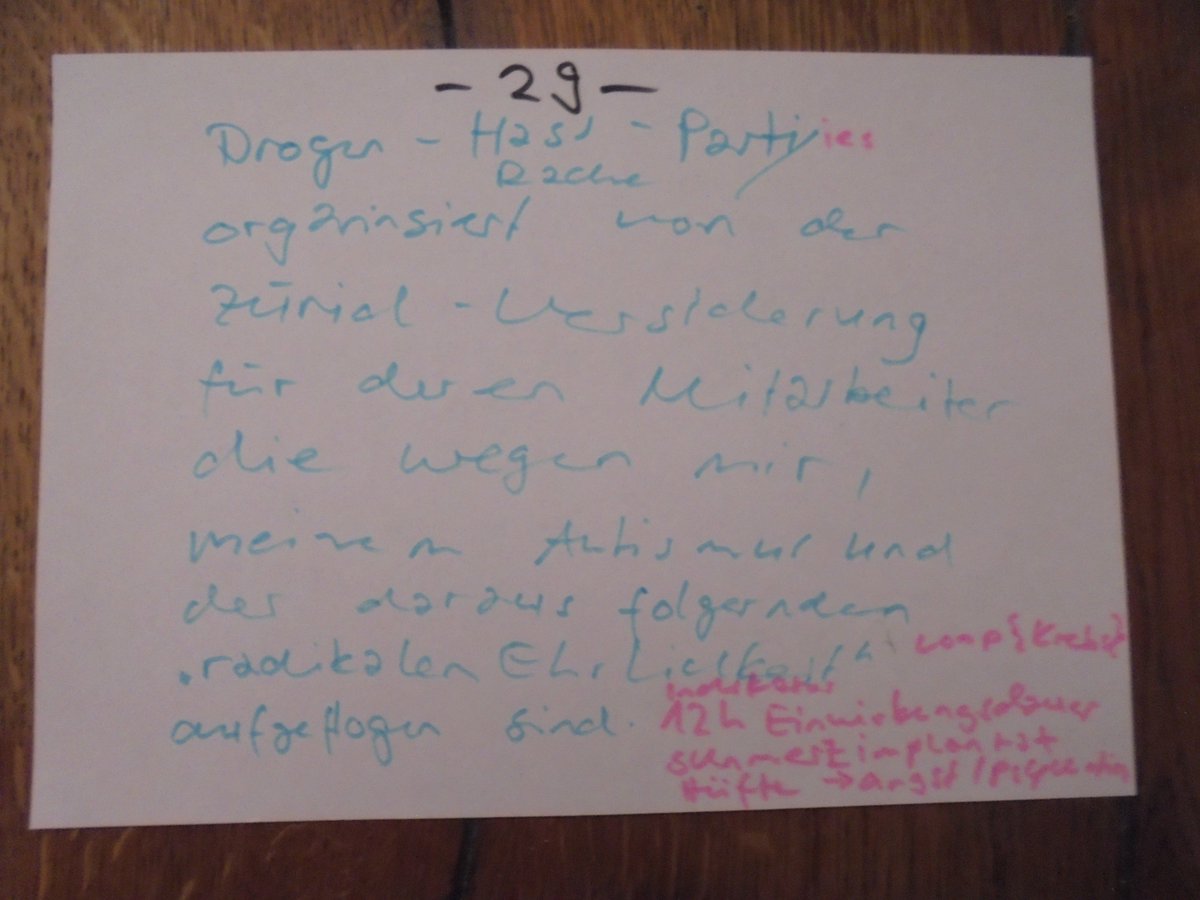 - 29 -
Drogen - Hass - Parties
Rache
organinsiert von der
Zürich - Versicherung
für deren Mitarbeiter
die wegen mir,
meinem Autismus und
der daraus folgernden
"radikalen Ehrlichkeit"
aufgeflogen sind.
comp {Krebs}
Indikator
12h Einwirkungsdauer
schmerzimplantat
Hüfte → angst /